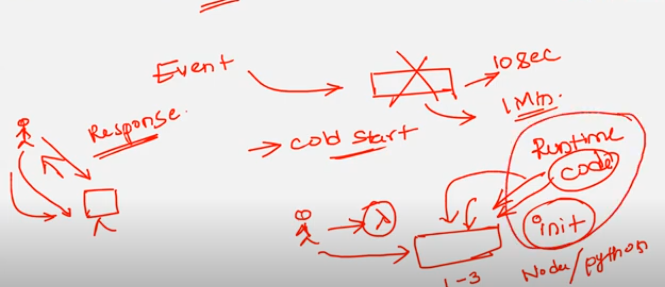 Event
10sec
1 Min.
Response.
→ cold start
Runtime
code
λ
init
1-3
Node/python